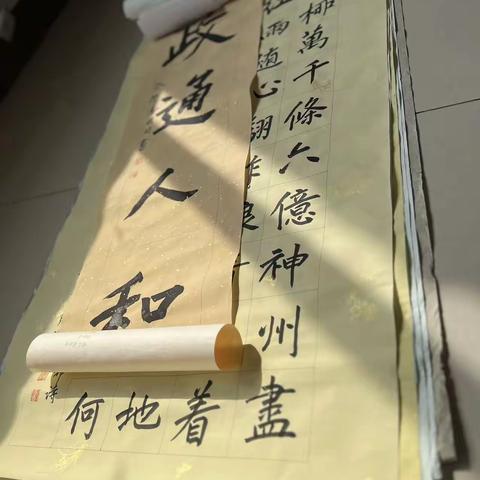 政通人和
柳萬千條六億神州盡
紅雨隨心翻作浪
着
地
何